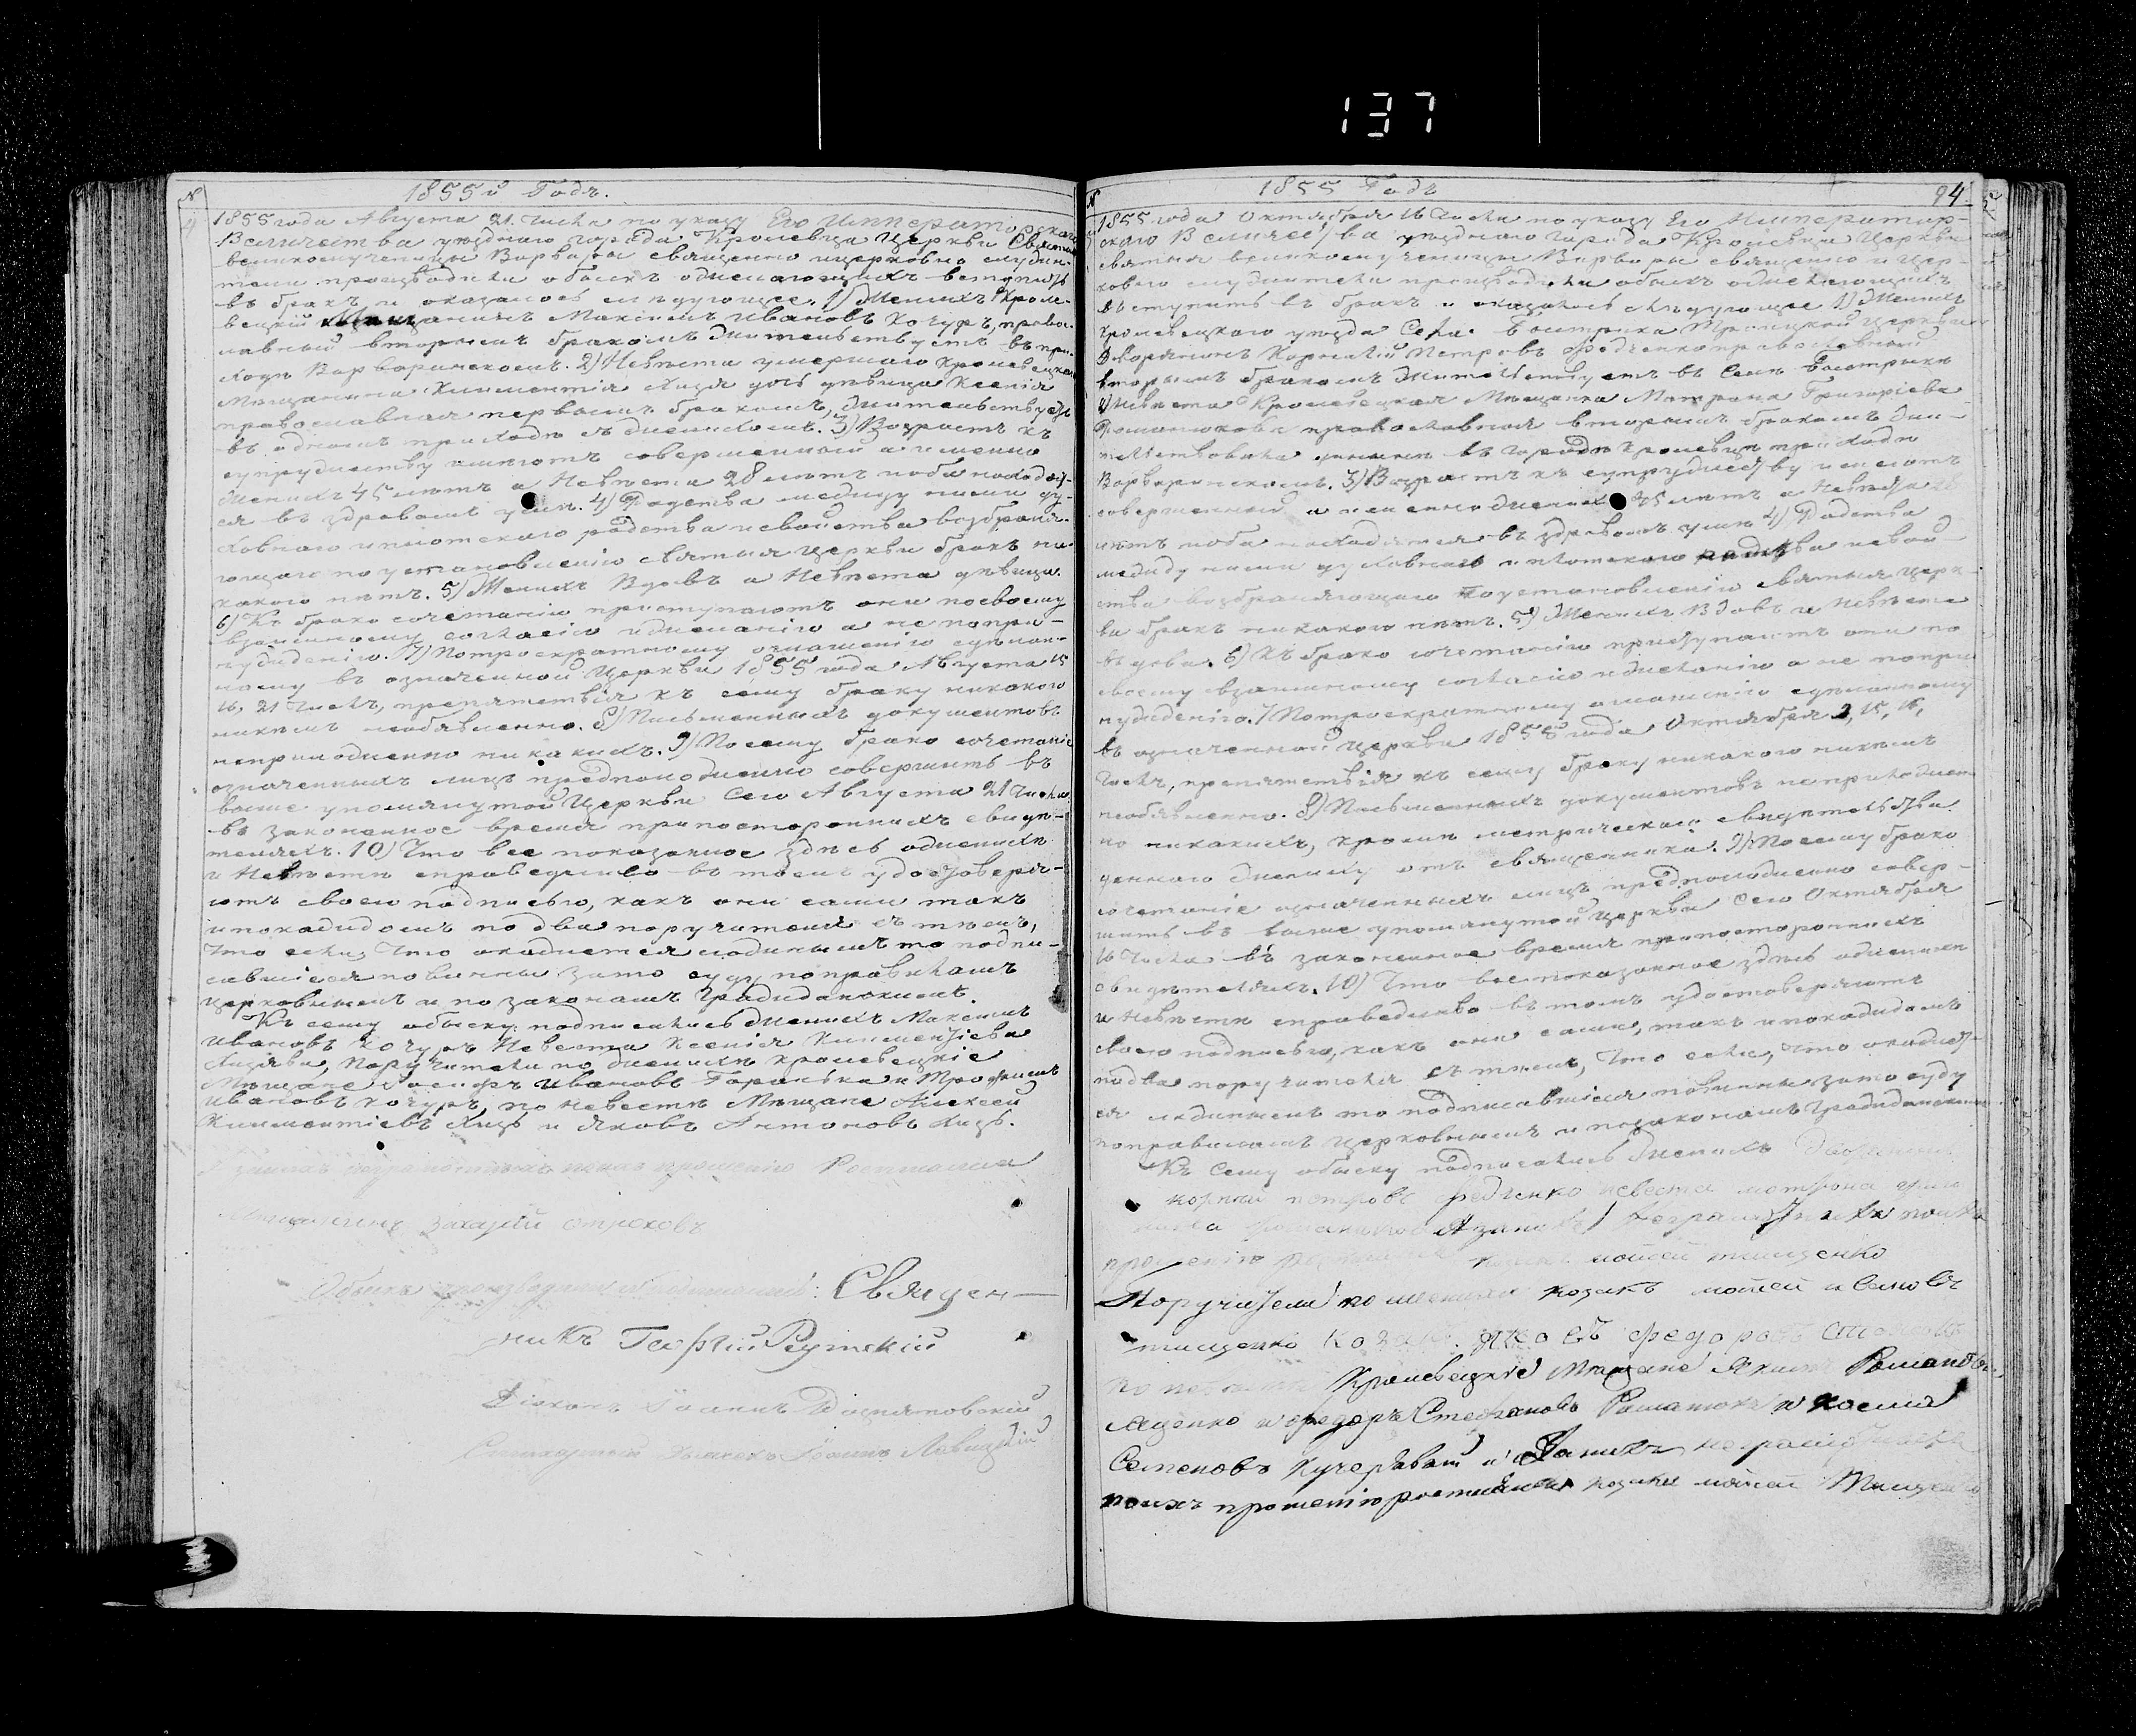 137
№
1855й Годъ.
4
1855 года Августа 21 числа по указу Его Императорскаго
Величества уезднаго города Кролевца Церкви Святыя
великомученицы Варвары священно и церковно служи-
тели производили обыскъ о желающихъ вступить
въ бракъ и оказалось слѣдующее. 1) Женихъ Кроле-
вецкій Мѣщанинъ Максимъ Ивановъ Кочуръ, право-
славный вторымъ бракомъ жительствуетъ въ при-
ходѣ Варваринскомъ. 2) Невѣста умершаго Кролевецкаго
Мѣщанина Климентія Хиця дочь дѣвица Ксенія
православная первымъ бракомъ, жительствуетъ
въ одномъ приходѣ съ женихомъ. 3) Возрастъ къ
супружеству имѣютъ совершенный а именно
Женихъ 45 лѣтъ а Невѣста 28 лѣтъ и оба находят-
ся въ здравомъ умѣ. 4) Родства между ними ду-
ховнаго и плотскаго родства и свойства возбраня-
ющаго по установленію святыя Церкви бракъ ни-
какого нѣтъ. 5) Женихъ Вдовъ а Невѣста дѣвица.
6) Къ брако сочетанію приступаютъ они по своему
взаимному согласію и желанію а не по при-
нужденію. 7) По троекратному оглашенію сдѣлан-
ному въ означенной Церкви 1855 года Августа 15
16, 21 числъ, препятствія къ сему браку никакого
никѣмъ необявленно. 8) Письменныхъ документовъ
неприложенно никакихъ. 9) По сему брако сочетаніе
означенныхъ лицъ предположенно совершить въ
выше упомянутой Церкви Сего Августа 21 числа
въ законенное время при постороннихъ свидѣ-
теляхъ. 10) Что все показанное здѣсь о женихѣ
и Невѣстѣ справедливо въ томъ удостоверя-
ютъ своею подписью, какъ они сами такъ
и по каждомъ по два поручителя съ тѣмъ,
что если, что окажется ложнымъ то подпи-
савшіеся повинны за то суду по правиламъ
церковнымъ и по законамъ Гражданскимъ.
Къ сему обыску подписались Женихъ Максимъ
Ивановъ Кочуръ Невеста Ксенія Климентіева
Поручители по женихѣ Кролевецкіе
Мѣщане Ивановъ и Трофимъ
Ивановъ Кочуръ, по невестѣ Мѣщане Алексей
Климентіевъ Хиць и Яковъ Антоновъ Хиць.
прошенію Росписался
Мѣщанинъ Захарій
Обыскъ производили Священ-
никъ Георгій
Діяконъ Іоаннъ
Іоаннъ Левицкій
№
1855 Годъ
94
1855 года Октября 16 числа по указу Его Император-
скаго Величества уезднаго города Кролевца Церкви
святыя великомученицы Варвары священно и цер-
ковно служители производили обыскъ о желающихъ
вступить въ бракъ и оказалось слѣдующее 1) Женихъ
Кролевецкаго уезда Села Быстрика Троицкой Церкви
Дворянинъ Корнилій Петровъ Федченко православный
вторымъ бракомъ жительствуетъ въ Селѣ Быстрикѣ
2) Невѣста Кролевецкая Мѣщанка Матрона Григоріева
Романюкова православная вторымъ бракомъ жи-
тельствовала въ городѣ Кролевцѣ приходѣ
Варваринскомъ. 3) Возрастъ къ супружеству имѣютъ
совершенный а именно Женихъ 45 лѣтъ а Невѣста
лѣтъ и оба находятся въ здравомъ умѣ 4) Родства
между ними духовнаго и плотскаго родства и свой-
ства возбраняющаго по установленію святыя Церк-
ви бракъ никакого нѣтъ. 5) Женихъ Вдовъ и Невѣста
вдова. 6) Къ брако сочетанію приступаютъ они по
своему взаимному согласію и желанію а не по при
нужденію. 7) По троекратному оглашенію сдѣланному
въ означенной Церкви 1855 года Октября 2, 15, 16,
числъ, препятствія къ сему браку никакого никѣмъ
необявленно. 8) Письменныхъ документовъ не приложен-
но никакихъ, кромѣ метрическаго свидѣтельства
данного Жениху отъ священника. 9) По сему брако
сочетаніе означенныхъ лицъ предположенно совер-
шить въ выше упомянутой Церкви сего Октября
16 числа въ законенное время при постороннихъ
свидѣтеляхъ. 10) Что все показанное здѣсь о женихѣ
и Невѣстѣ справедливо въ томъ удостоверяютъ
своею подписью, какъ они сами, такъ и по каждомъ
по два поручителя съ тѣмъ, что если, что окажет-
ся ложнымъ то подписавшіеся повинны за то суду
по правиламъ Церковнымъ и по законамъ Гражданскимъ
Къ сему обыску подписались Женихъ Дворянинъ
Петровъ Федченко невеста
прошенію Мойсей Тищенко
Поручители по женихѣ козакъ Мойсей Ивановъ
Тищенко Козакъ Федоровъ
Кролевецкіе Мѣщане Якимъ Романовъ
и Федоръ Степановъ Романюкъ и
Семеновъ Кучерявый
по ихъ прошенію росписался козакъ Мойсей Тищенко